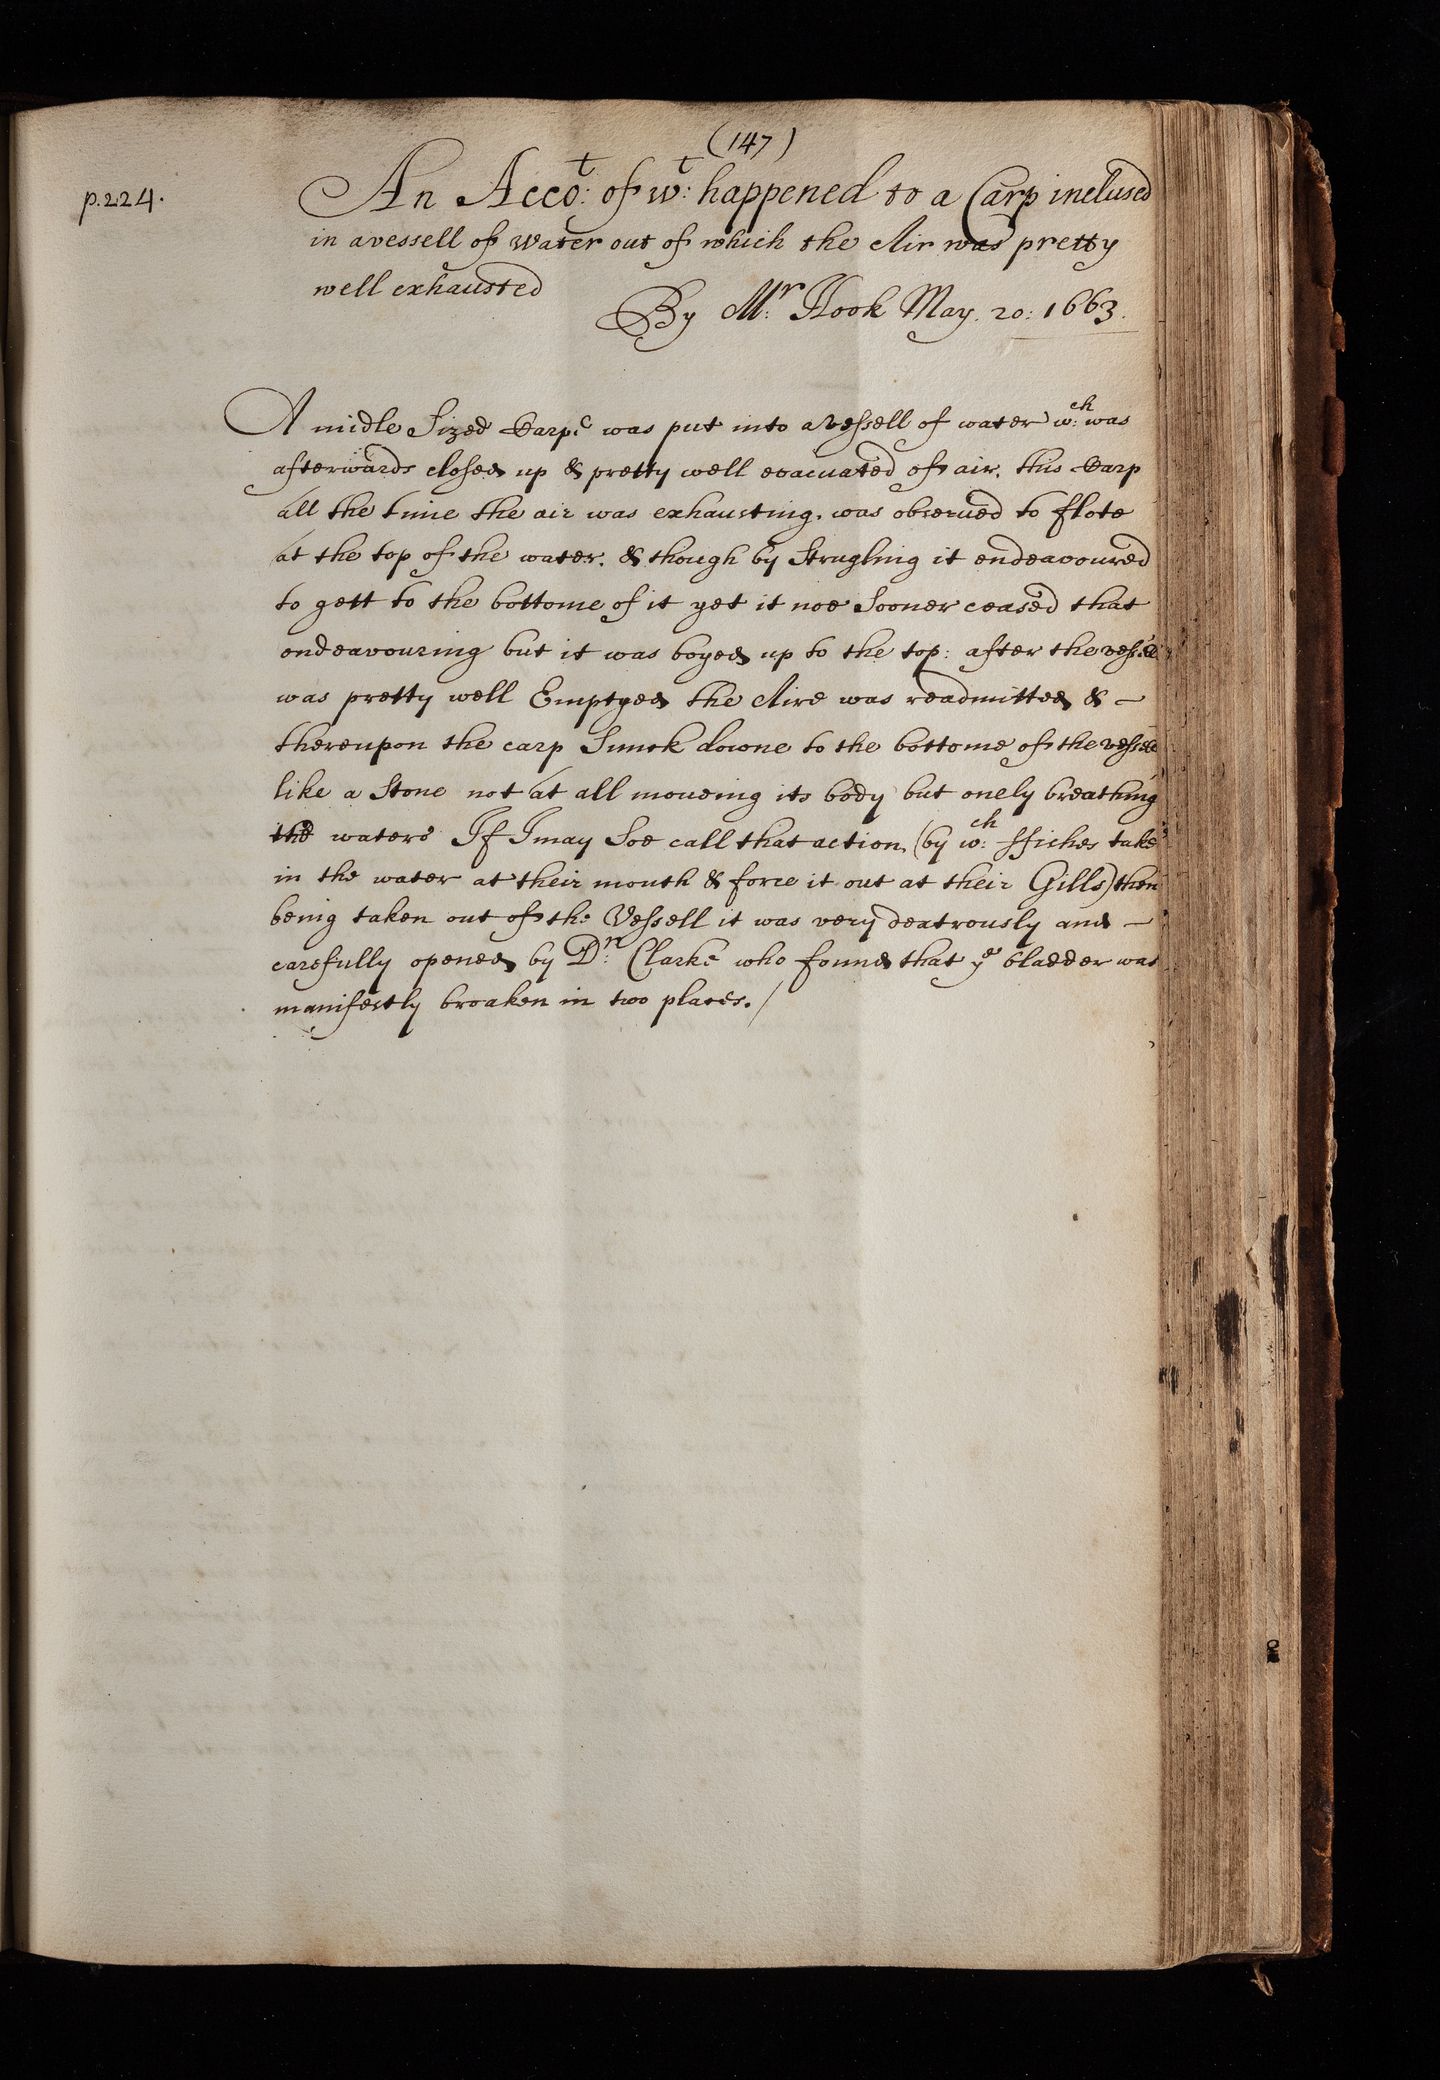 (147)
p.224.
An Acco:t of w:t happened to a Carp inclused
in a vessell of water out of which the Air was pretty
well exhausted
By Mr: Hook May. 20: 1663.
A midle Sized Carpe was put into a vessell of water w:ch was
afterwards closed up & pretty well evacuated of air. this Carp
all the time the air was exhausting. was observed to flote
at the top of the water. & though by Strugling it endeavoured
to gett to the bottome of it yet it noe Sooner ceased that
endeavouring but it was boyed up to the top: after the vessell
was pretty well Emptyed the Aire was readmitted & —
thereupon the carp Sunck downe to the bottome of the vessell
like a Stone not at all moveing its body but onely breathing
the watere If I may Soe call that action, (by w:ch ffishes take
in the water at their mouth & force it out at their Gills) then
being taken out of the Vessell it was very dextrously and —
carefully opened by Dr: Clarke who found that ye bladder was
manifestly broaken in two places. /